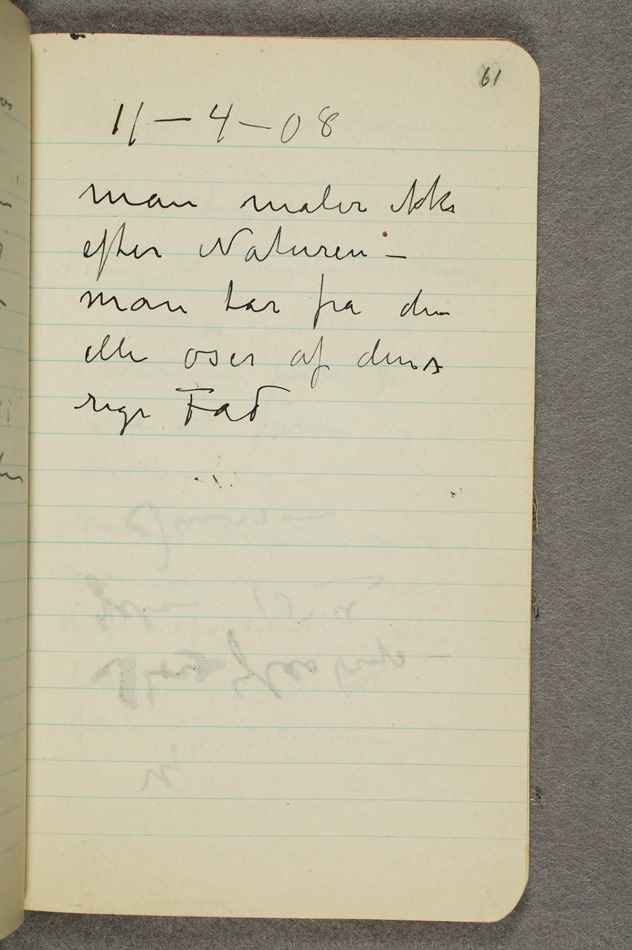 61
11 – 4 – 08
man maler ikke
efter Naturen –
man tar fra den
eller øser af dens
rige Fad